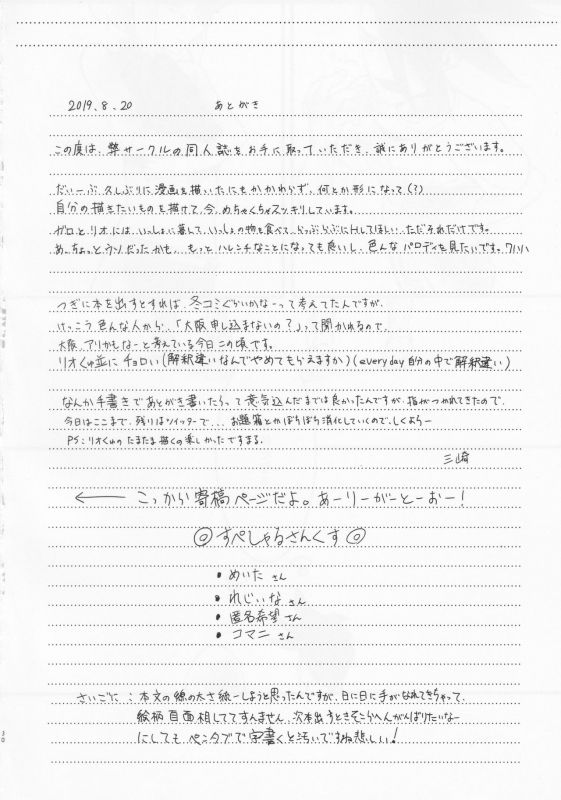 2019.8.20 あとがき
この度は、弊サークルの同人誌をお手に取っていただき、誠にありがとうございます。
だいーぶ久しぶりに漫画を描いたにもかかわらず、何とか形になって(?)
自分の描きたいものを描けて、今、めちゃくちゃスッキリしています。
ガロとリオには、いっしょに暮して、いっしょの物を食べて、らぶらぶにHしてほしい、ただそれだけです。
あ、ちょっとウソだったかも、もっとハレンチなことになっても良いし、色んなパロディを見たいです。ワハハ
つぎに本を出すとすれば、冬コミぐらいかなーって考えてたんですが、
けっこう色んな人から、「大阪申し込まないの?」って聞かれるので、
大阪、アリかもなーと考えている今日この頃です。
リオくゅ並にチョロい(解釈違いなんでやめてもらえますか)(everyday自分の中で解釈違い)
なんか手書きであとがき書いたらって意気込んだまでは良かったんですが、指がつかれてきたので、
今日はここまで、残りはツイッターで... お題箱とかぼちぼち消化していくので、しくよらー
PS:リオくゅのたまたま描くの楽しかったですまる。
三崎
← こっから寄稿ページだよ。あーりーがーとーおー!
◎すぺしゃるさんくす◎
• めいた さん
• れじぃな さん
• 匿名希望 さん
• コマニ さん
さいごに:本文の線の太さ統一しようと思ったんですが、日に日に手がなれてきちゃって、
絵柄百面相しててすんません、次本出すときそこらへんがんばりたいなー
にしても ペンタブで字書くと汚いですね悲しい!